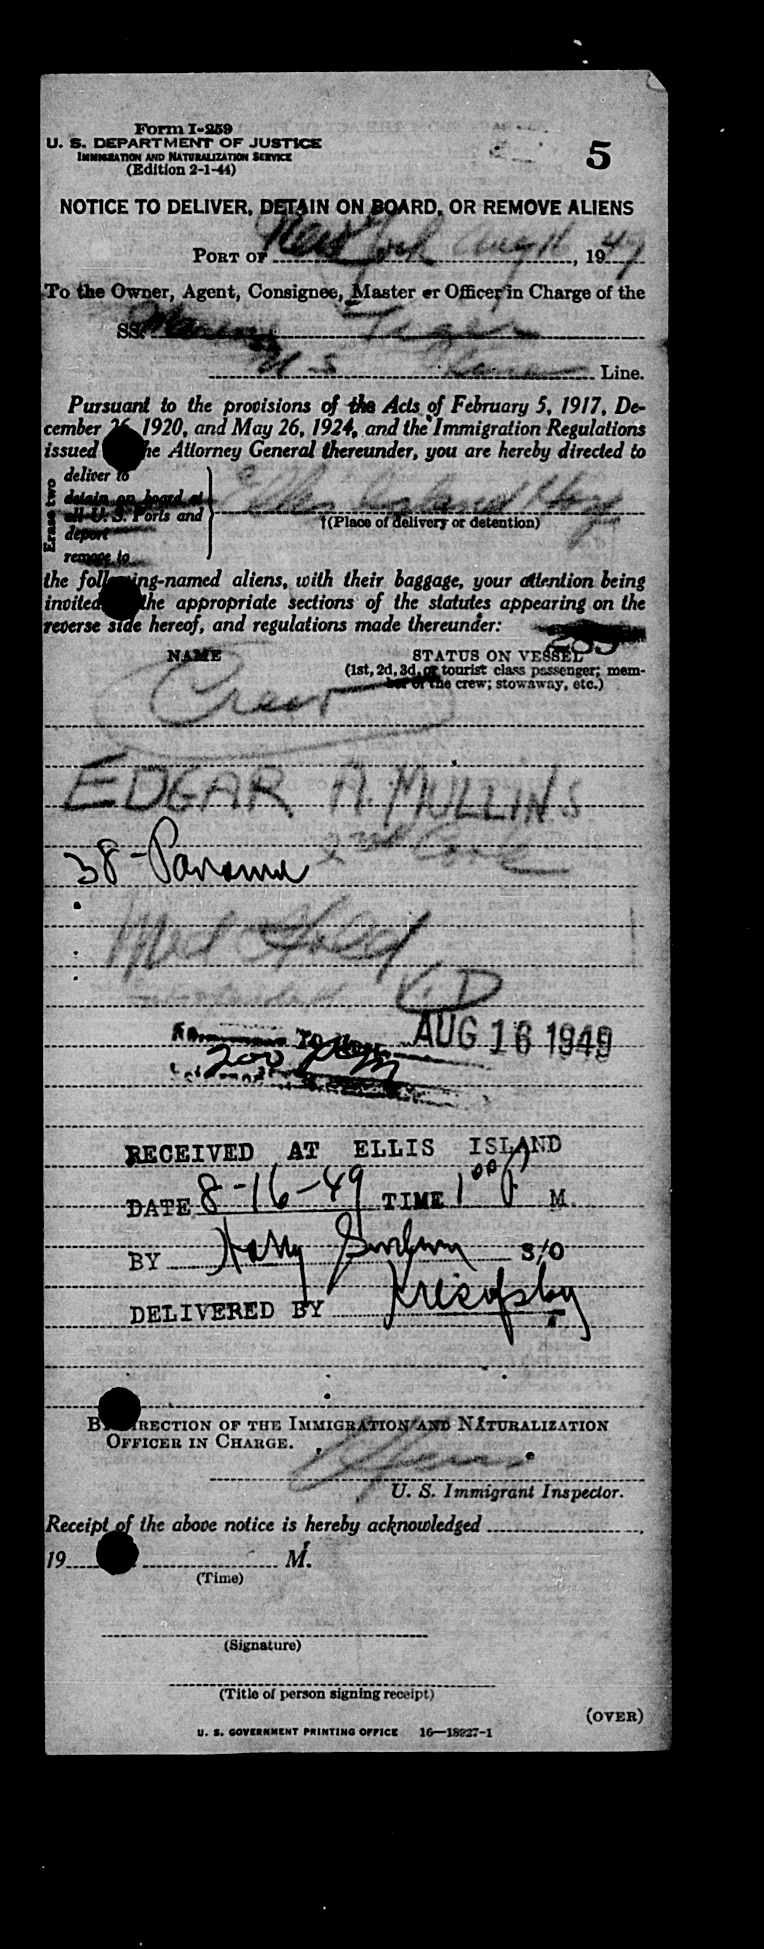 Form I-259
U. S. DEPARTMENT OF JUSTICE
IMMIGRATION AND NATURALIZATION SERVICE
(Edition 2-1-44)
5
NOTICE TO DELIVER, DETAIN ON BOARD, OR REMOVE ALIENS
PORT OF New York Aug 16, 1949
To the Owner, Agent, Consignee, Master or Officer in Charge of the
SS. Marine Tiger
U S Line.
Pursuant to the provisions of the Acts of February 5, 1917, De-
cember 26, 1920, and May 26, 1924, and the Immigration Regulations
issued he Attorney General thereunder, you are hereby directed to
Erase two
deliver to
detain on board at
all U. S. Ports and
deport
remove to
Ellis Island Hosp
†(Place of delivery or detention)
the following-named aliens, with their baggage, your attention being
invited the appropriate sections of the statutes appearing on the
reverse side hereof, and regulations made thereunder:
NAME STATUS ON VESSEL
(1st, 2d, 3d, or tourist class passenger; mem-
ber of the crew; stowaway, etc.)
Crew
EDGAR A. MULLINS
38-Panama 2nd Cook
Med Hold
V.D
AUG 16 1949
RECEIVED AT ELLIS ISLAND
DATE 8-16-49 TIME 1 00 P M.
BY Harry S/O
DELIVERED BY
B IRECTION OF THE IMMIGRATION AND NATURALIZATION
OFFICER IN CHARGE.
U. S. Immigrant Inspector.
Receipt of the above notice is hereby acknowledged
19 M.
(Time)
(Signature)
(Title of person signing receipt)
(OVER)
U. S. GOVERNMENT PRINTING OFFICE 16—18927-1